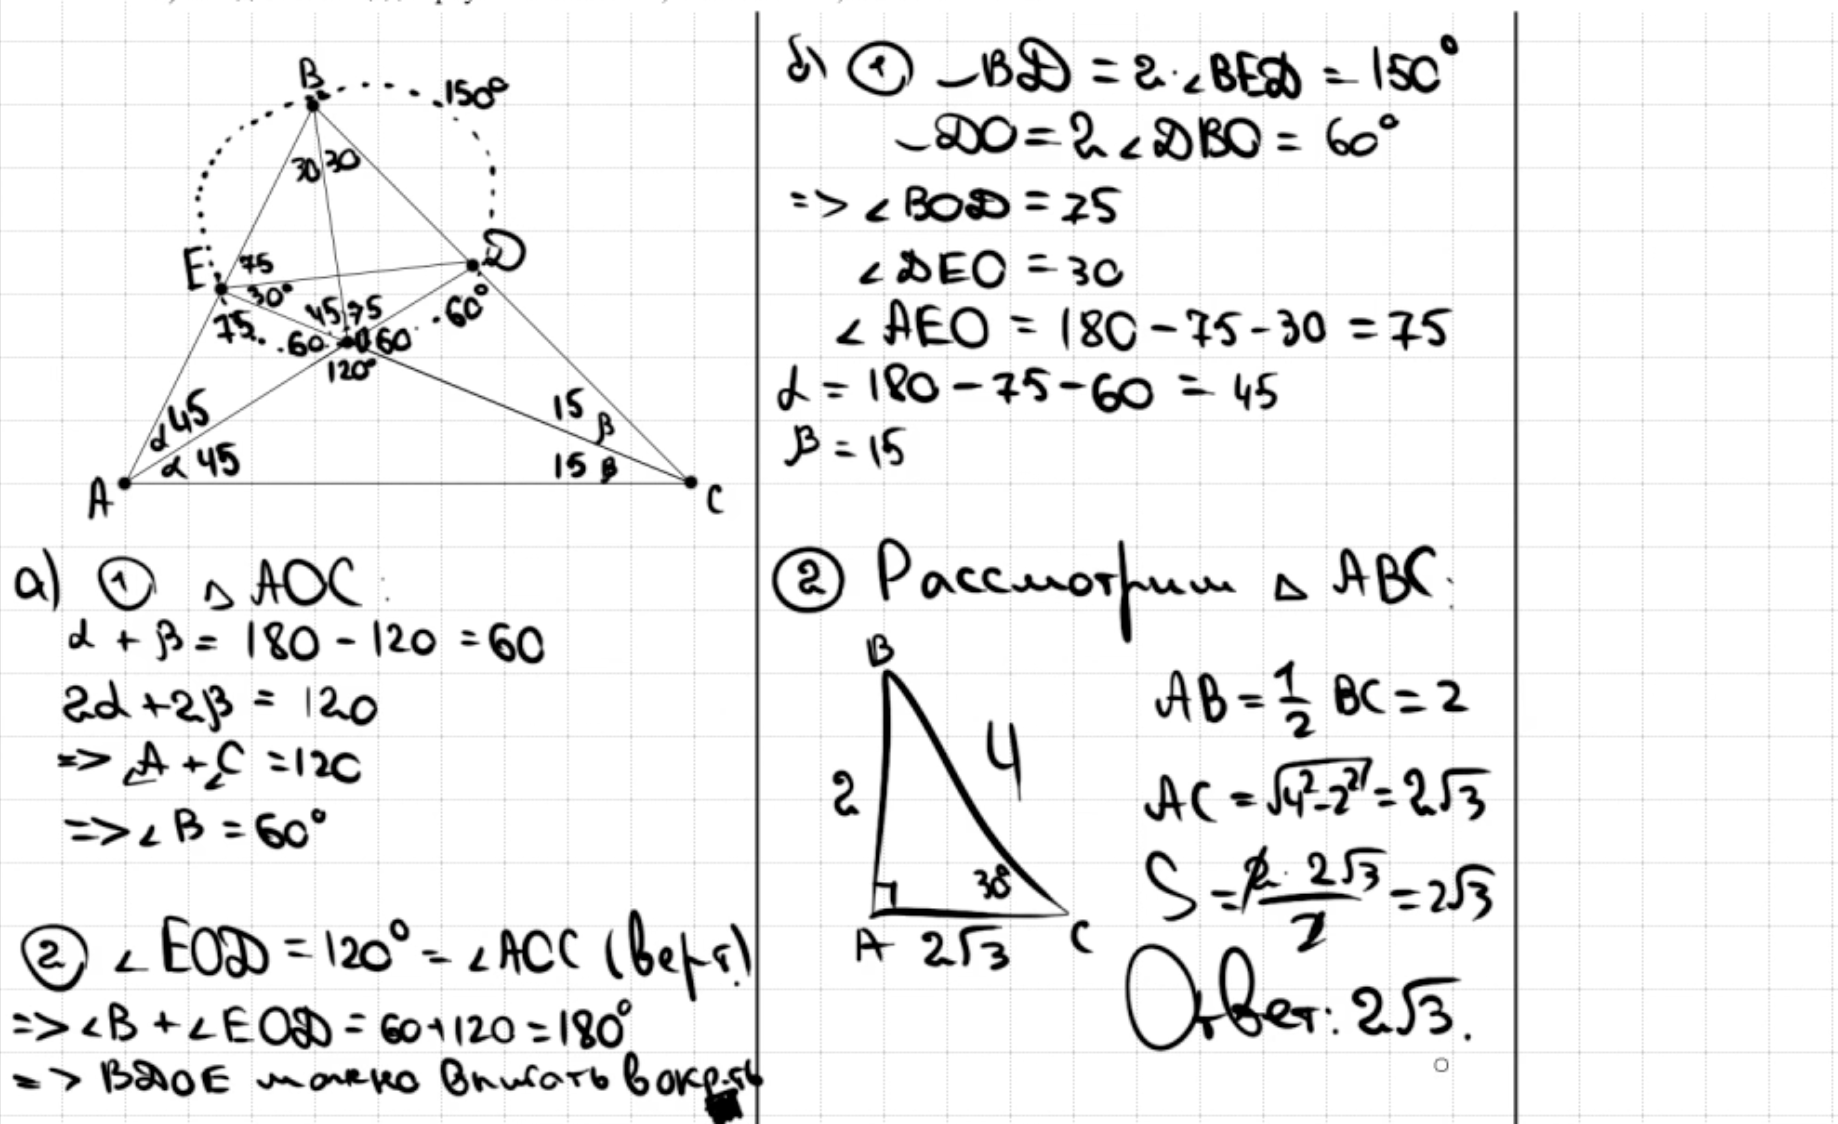 B
150°
30 30
E 75 D
30° 45 75 60°
75 60 O 60
120°
α 45 15 β
α 45 15 β
A C
а) ① △ AOC:
α + β = 180 - 120 = 60
2α + 2β = 120
=> ∠A + ∠C = 120
=> ∠B = 60°
② ∠EOD = 120° = ∠AOC (верт.)
=> ∠B + ∠EOD = 60+120 = 180°
=> BDOE можно вписать в окр-ть
б) ① ⌣BD = 2·∠BED = 150°
⌣DO = 2∠DBO = 60°
=> ∠BOD = 75
∠DEO = 30
∠AEO = 180 - 75 - 30 = 75
α = 180 - 75 - 60 = 45
β = 15
② Рассмотрим △ ABC:
B
2 4
30°
A 2√3 C
AB = 1/2 BC = 2
AC = √4²-2² = 2√3
S = 2·2√3/2 = 2√3
Ответ: 2√3.